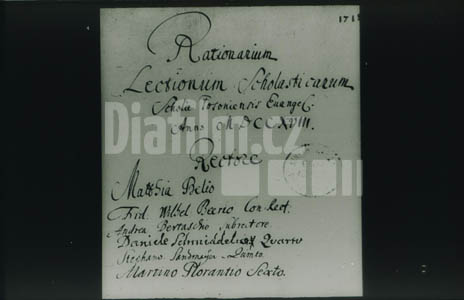 171
Rationarium
Lectionum Scholasticarum
Schola Posoniensis Evangel:
Anno MDCCXVIII.
Rectore
Matthia Belio
Frid. Wilhel Beerio Con Rect.
Andrea Bertascho Subrectore
Daniele Schmiddelio Quarto
Stephano Quinto
Martino Florantio Sexto.
Diafilm.cz